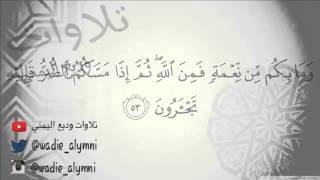 تلاوات
وَمَا بِكُم مِّن نِّعْمَةٍ فَمِنَ ٱللَّهِ ۖ ثُمَّ إِذَا مَسَّكُمُ ٱلضُّرُّ فَإِلَيْهِ
تَجْـَٔرُونَ ٥٣
تلاوات وديع اليمني
@wadie_alymni
@wadie_alymni